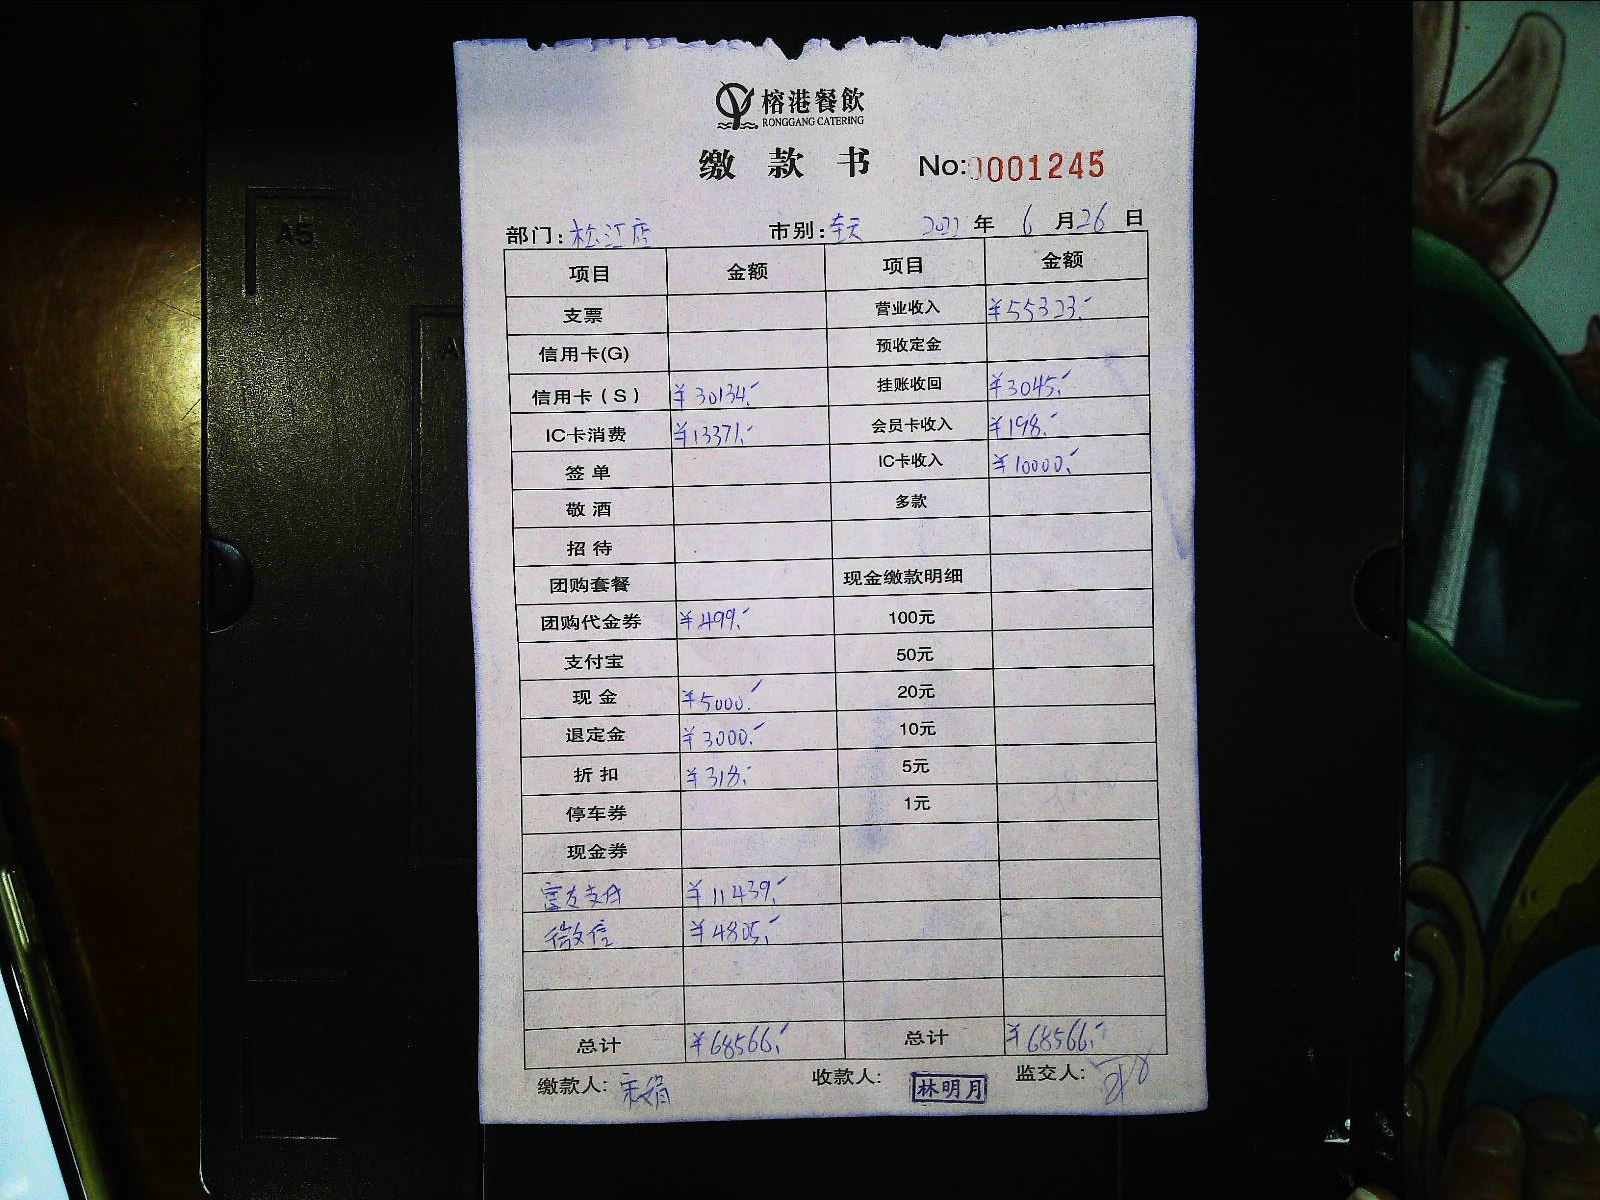 榕港餐飲
RONGGANG CATERING
缴款书 No:0001245
部门:松江店 市别:全天 2022年6月26日
项目 金额 项目 金额
支票 营业收入 ¥55323.-
信用卡(G) 预收定金
信用卡(S) ¥30134.- 挂账收回 ¥3045.-
IC卡消费 ¥13371.- 会员卡收入 ¥198.-
签单 IC卡收入 ¥10000.-
敬酒 多款
招待
团购套餐 现金缴款明细
团购代金券 ¥499.- 100元
支付宝 50元
现金 ¥5000.- 20元
退定金 ¥3000.- 10元
折扣 ¥318.- 5元
停车券 1元
现金券
富友支付 ¥11439.-
微信 ¥4805.-
总计 ¥68566.- 总计 ¥68566.-
缴款人: 宋娟 收款人: 林明月 监交人:
A5